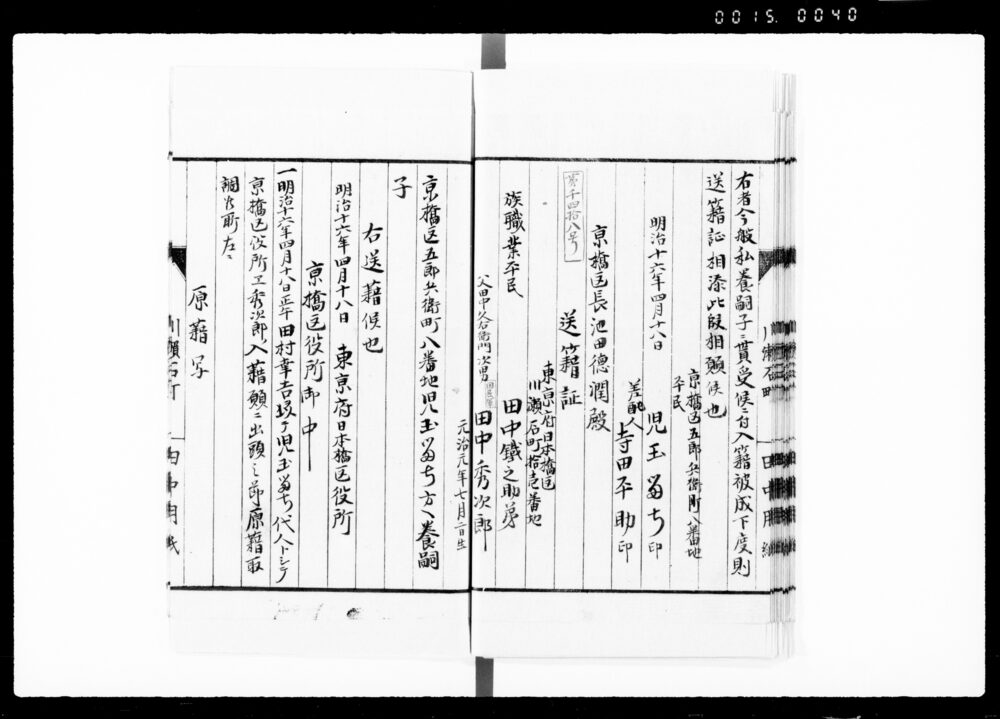 0015. 0040
右者今般私養嗣子ニ貰受候ニ付入籍被成下度則
送籍証相添此段相願候也
京橋区五郎兵衛町八番地
平民
明治十六年四月十八日
児玉留吉 印
差配人 寺田平助 印
京橋区長池田徳潤殿
第千四拾八号
送籍証
東京府日本橋区
川瀬石町拾壱番地
田中鐵之助弟
族職業平民
父田中久右衛門次男
田中秀次郎
元治元年七月二日生
京橋区五郎兵衛町八番地児玉留吉方へ養嗣
子
右送籍候也
明治十六年四月十八日 東京府日本橋区役所
京橋区役所御中
一明治十六年四月十八日正午田村幸吉儀ヲ児玉留吉代人トシテ
京橋区役所エ秀次郎入籍願ニ出頭之節原籍取
調候所左ニ
原籍写
川瀬石町
田中用紙